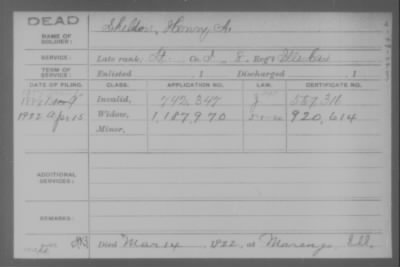 DEAD
NAME OF SOLDIER: Sheldon, Henry A.
SERVICE: Late rank, Lt Co. I, 8 Reg't Ills Cav
TERM OF SERVICE: Enlisted , 1 Discharged , 1
DATE OF FILING. CLASS. APPLICATION NO. LAW. CERTIFICATE NO.
Invalid, 742,347
1922 Apr 15 Widow, 1,187,970 920,614
Minor,
ADDITIONAL SERVICES:
REMARKS:
Died Mar 14, 1922, at Marengo, Ill.